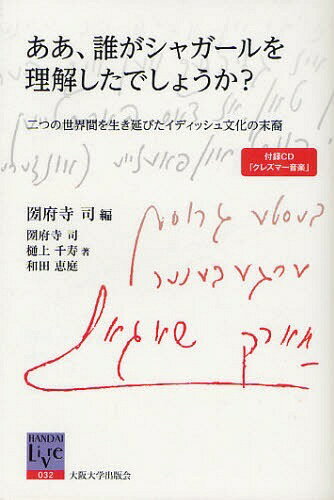 ああ、誰がシャガールを
理解したでしょうか?
二つの世界間を生き延びたイディッシュ文化の末裔
付録CD
「クレズマー音楽」
圀府寺 司 編
圀府寺 司
樋上 千寿 著
和田 恵庭
בעסטע גרוסן
ערגעבענער
מארק שאגאל
HANDAI
Live
032
大阪大学出版会